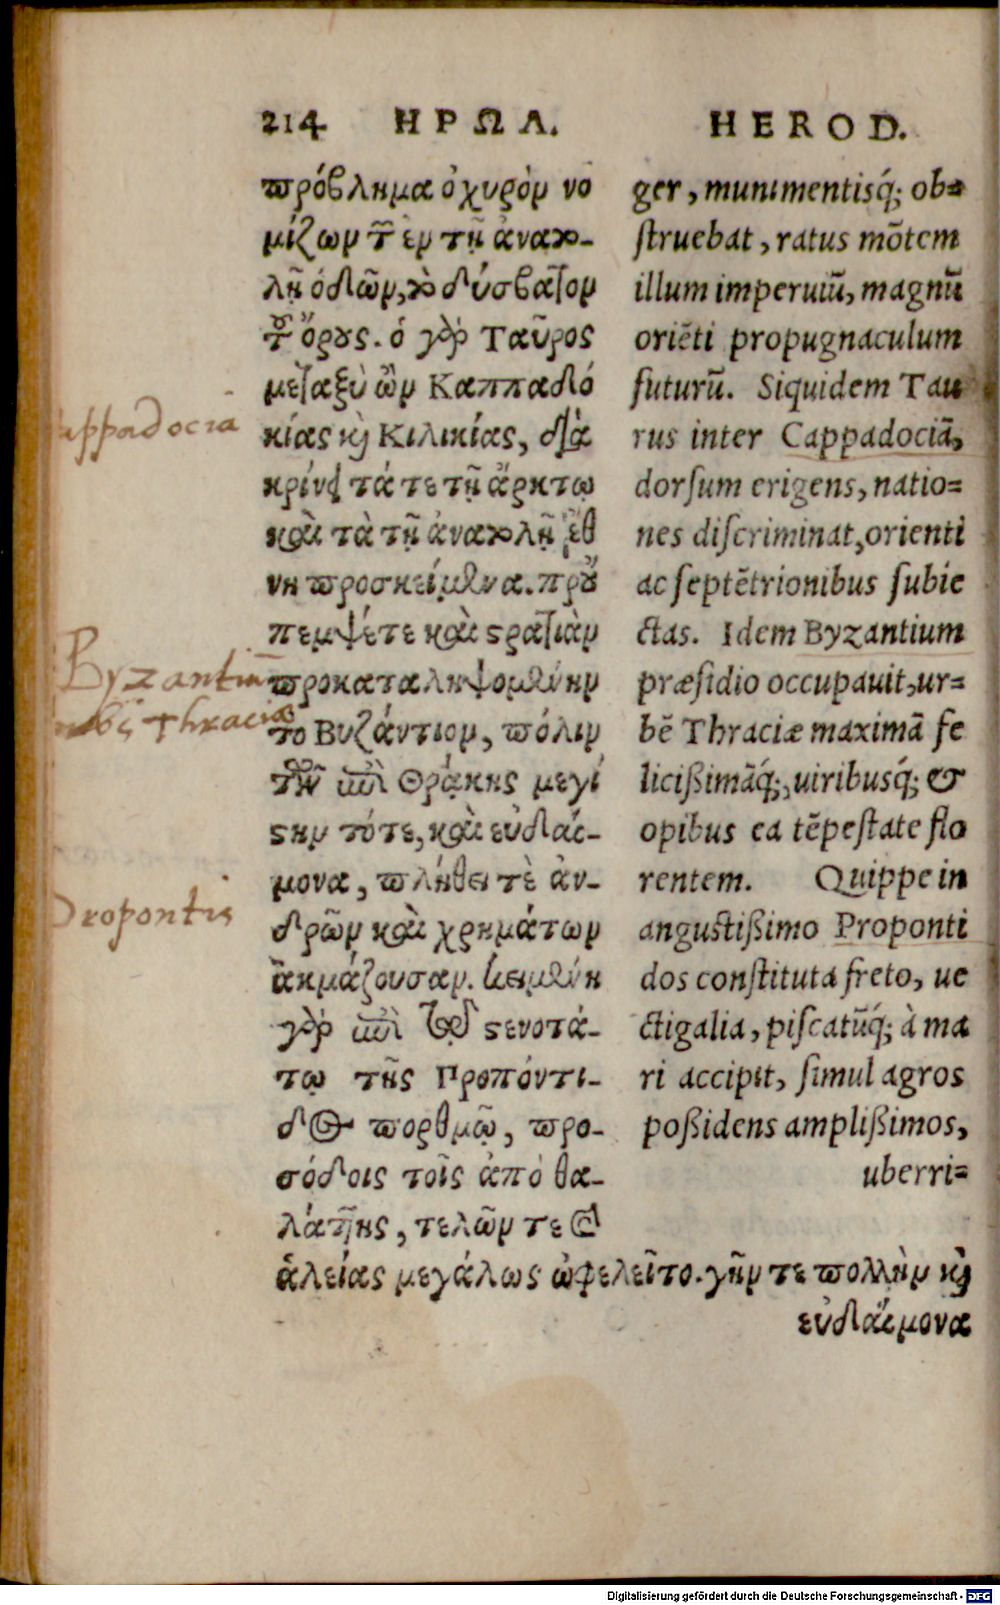 214 ΗΡΩΔ. HEROD.
πρόβλημα ὀχυρὸν νο
μίζων τῶν ἐν τῇ ἀνατο-
λῇ ὁδῶν, τὸ δύσβατον
τοῦ ὄρους. ὁ γὰρ Ταῦρος
μεταξὺ ὢν Καππαδό
κίας καὶ Κιλικίας, δια
κρίνει τά τε τῇ ἄρκτῳ
καὶ τὰ τῇ ἀνατολῇ ἔθ
νη προσκείμενα. πρὸ
πεμψέ τε καὶ στρατιὰν
προκαταληψομένην
το Βυζάντιον, πόλιν
τῶν ἐπὶ Θρᾴκης μεγί
στην τότε, καὶ εὐδαί-
μονα, πλήθει τὲ ἀν-
δρῶν καὶ χρημάτων
ἀκμάζουσαν. κειμένη
γὰρ ἐπὶ τῷ στενοτά-
τῳ τῆς Προπόντι-
δος πορθμῷ, προ-
σόδοις τοῖς ἀπὸ θα-
λάττης, τελῶν τε καὶ
ἁλείας μεγάλως ὠφελεῖτο. γῆν τε πολλὴν καὶ
εὐδαίμονα
ger, munimentisq́; ob=
ſtruebat, ratus mōtem
illum imperuiū, magnū
oriēti propugnaculum
futurū. Siquidem Tau
rus inter Cappadociā,
dorſum erigens, natio=
nes diſcriminat, orienti
ac ſeptētrionibus ſubie
ctas. Idem Byzantium
præſidio occupauit, ur=
bē Thraciæ maximā fe
licißimāq́;, uiribusq́; &
opibus ea tēpeſtate flo
rentem. Quippe in
anguſtißimo Proponti
dos conſtituta freto, ue
ctigalia, piſcatūq́; à ma
ri accipit, ſimul agros
poßidens amplißimos,
uberri=
appadocia
Byzantiū
urbs Thraciæ
Propontis
Digitalisierung gefördert durch die Deutsche Forschungsgemeinschaft - DFG